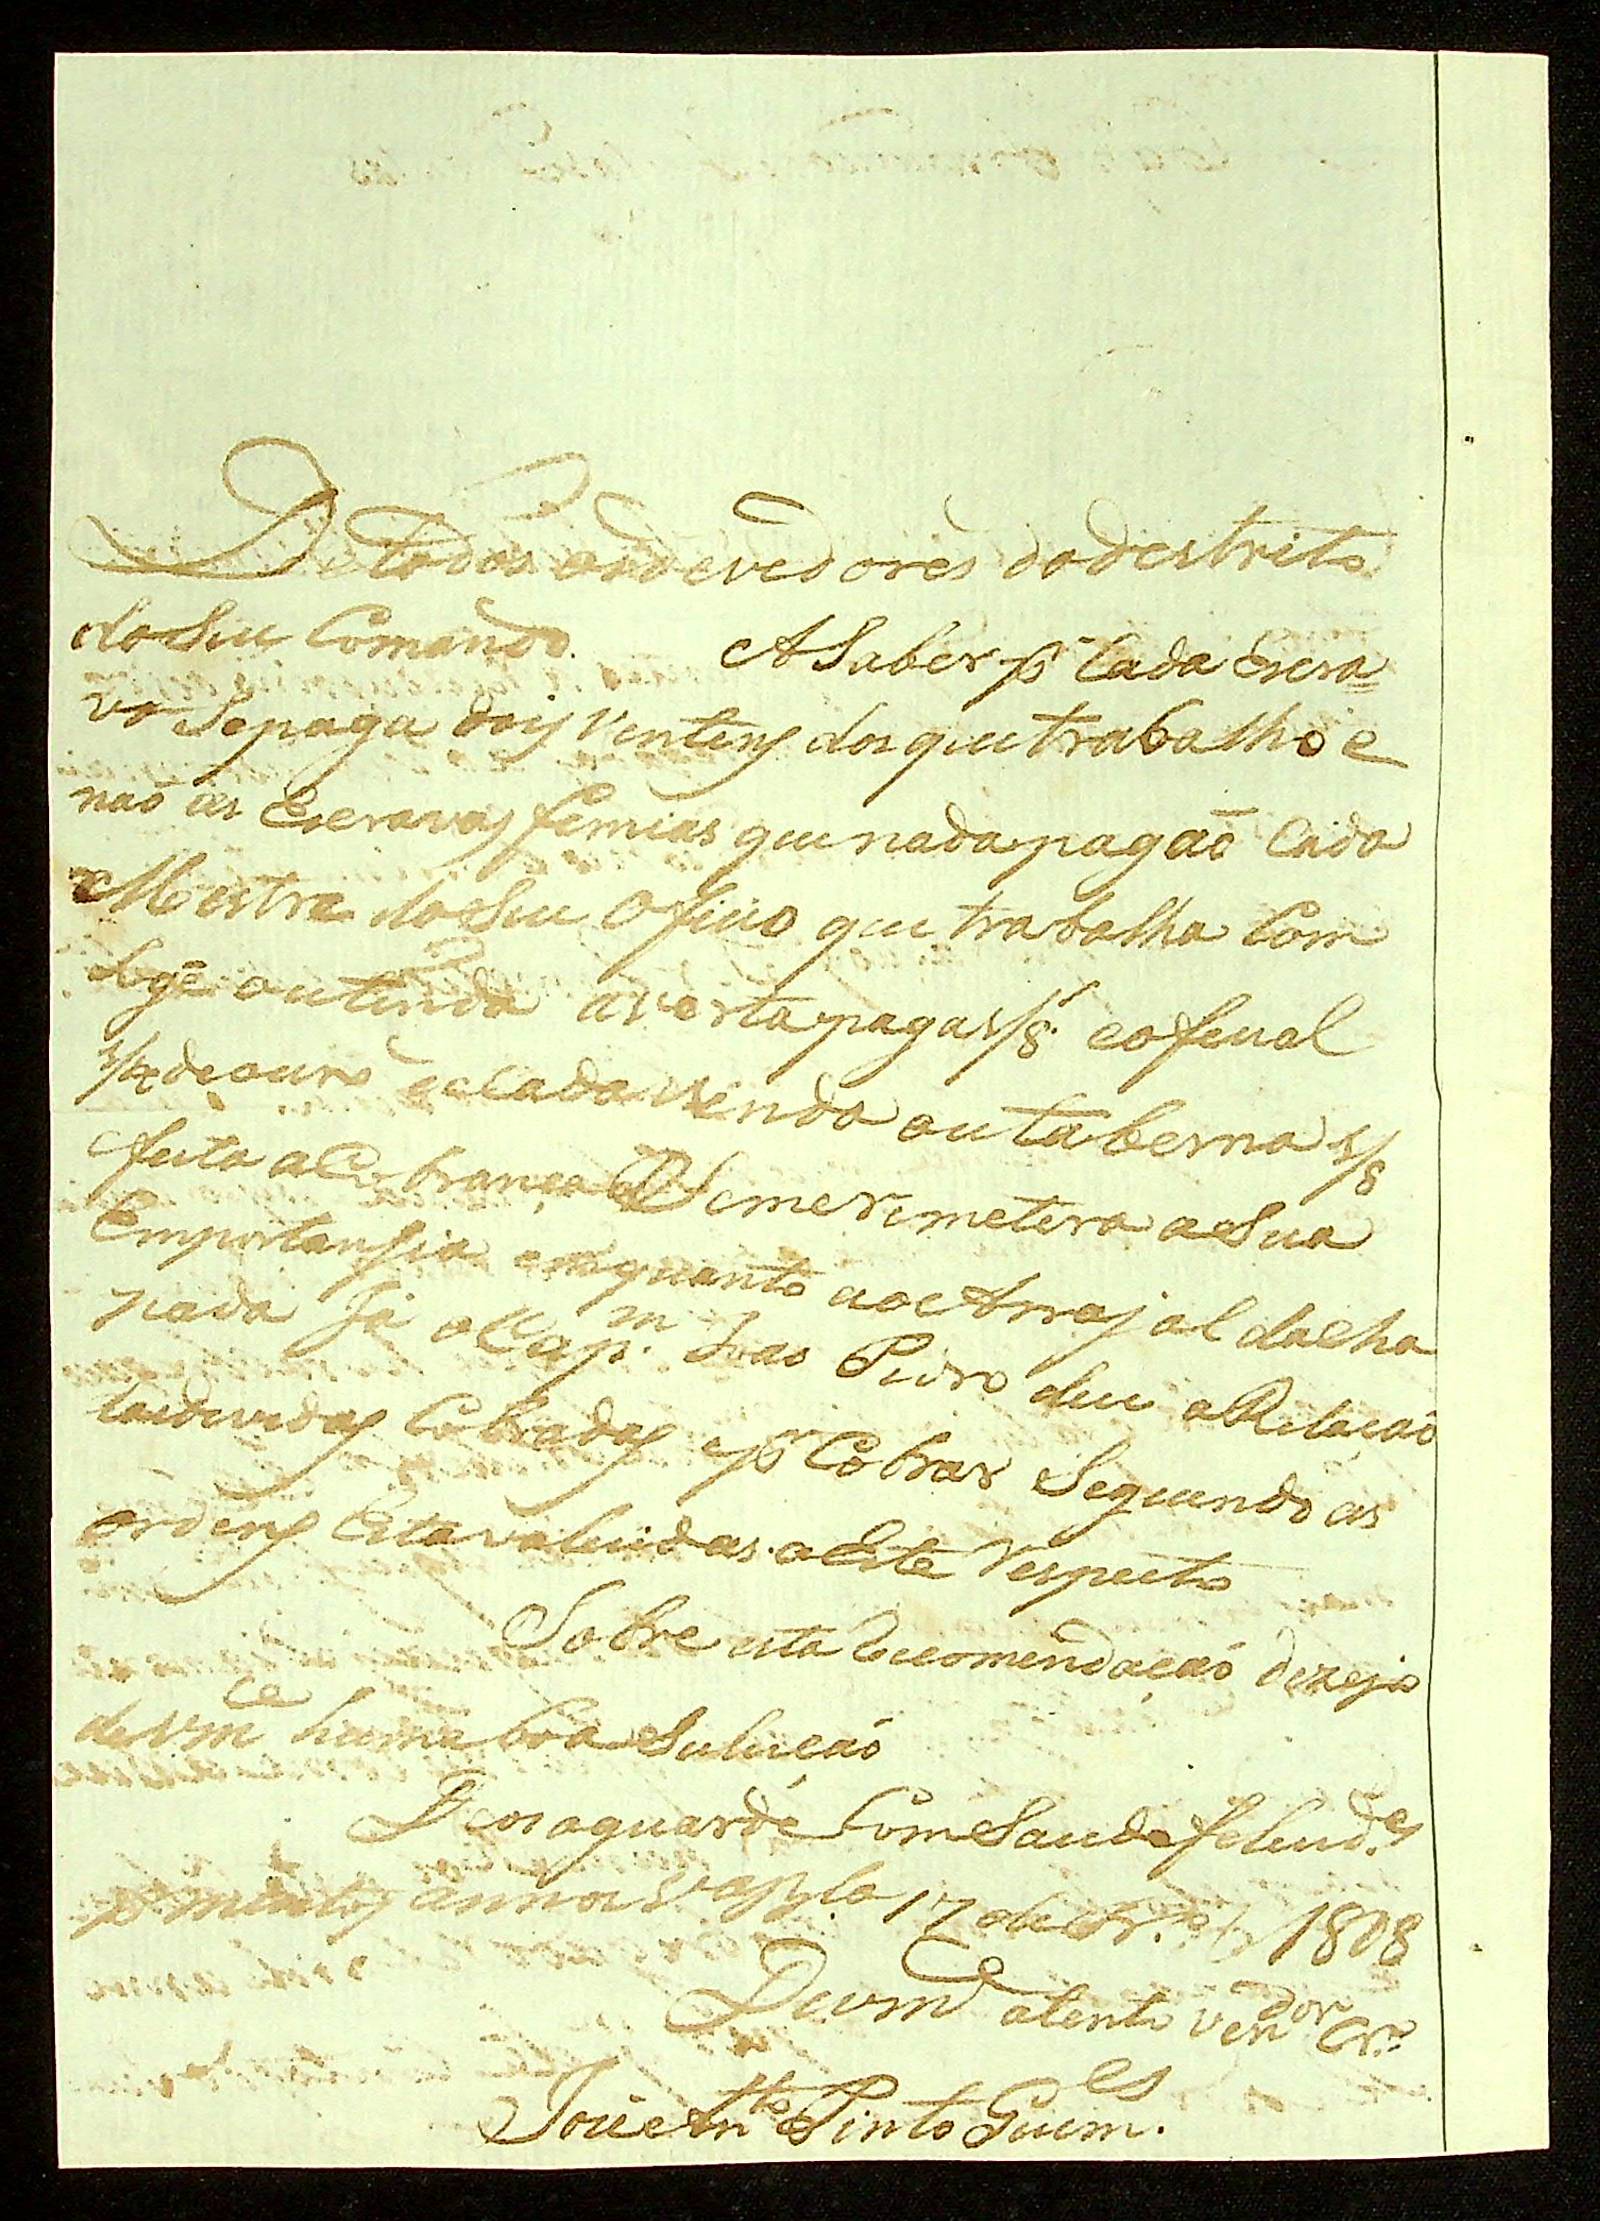 De todos os devedores do destrito
do Seu Comando. A Saber p.r Cada escra=
vo Sepaga dois Vintens dos que trabalhõ e
naõ as escravas femias que nada pagaõ Cada
Mestre do Seu Oficio que trabalha Com
loge outenda averta paga 1/8.ª e oficial
1/4 de ouro e Cada Venda ou taberna 1/8
feita a Cobrança Seme remetera a Sua
Emportansia emquanto ao Arrajal da cha
pada Ja o Cap.m Joao Pedro deu a Relacaõ
das duvidas Cobradas e p.r Cobrar Seguendo as
Ordens Estavalecidas a Este Respeito
Sobre esta Recomendacaõ dezejo
de Vm.ce huma boa Solucaõ
D'eos aguarde Com Saude felicid.es
p.r muitos annos 17 de 1808
De Vm.ce atento ven.dor Cr.o
Joze An.to Pinto Guim.es